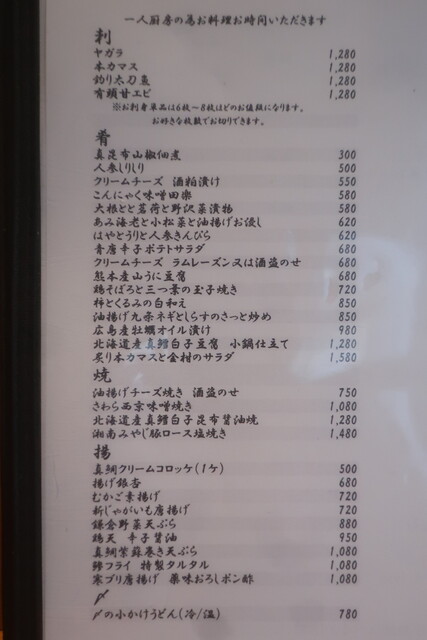 一人厨房の為お料理お時間いただきます
刺
ヤガラ 1,280
本カマス 1,280
釣り太刀魚 1,280
有頭甘エビ 1,280
※お刺身単品は6枚〜8枚ほどのお値段になります。
お好きな枚数でお切りできます。
肴
真昆布山椒佃煮 300
人参しりしり 500
クリームチーズ 酒粕漬け 550
こんにゃく味噌田楽 580
大根と茗荷と野沢菜漬物 580
あみ海老と小松菜と油揚げお浸し 620
はやとうりと人参きんぴら 620
青唐辛子ポテトサラダ 680
クリームチーズ ラムレーズン又は酒盗のせ 680
熊本産山うに豆腐 680
鶏そぼろと三つ葉の玉子焼き 720
柿とくるみの白和え 850
油揚げ九条ネギとしらすのさっと炒め 850
広島産牡蠣オイル漬け 980
北海道産真鱈白子豆腐 小鍋仕立て 1,280
炙り本カマスと金柑のサラダ 1,580
焼
油揚げチーズ焼き 酒盗のせ 750
さわら西京味噌焼き 1,080
北海道産真鱈白子昆布醤油焼 1,280
湘南みやじ豚ロース塩焼き 1,480
揚
真鯛クリームコロッケ(1ケ) 500
揚げ銀杏 680
むかご素揚げ 720
新じゃがいも唐揚げ 720
鎌倉野菜天ぷら 880
鶏天 辛子醤油 950
真鯛紫蘇巻き天ぷら 1,080
鯵フライ 特製タルタル 1,080
寒ブリ唐揚げ 薬味おろしポン酢 1,080
〆
〆の小かけうどん(冷/温) 780